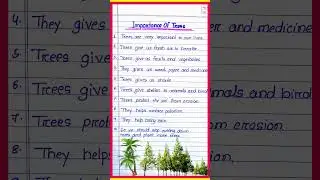 Importance Of Trees
1. Trees are very important in our lives.
2. Trees give us fresh air to breathe.
3. Trees give us fruits and vegetables.
4. They gives us wood, paper and medicines.
5. Trees gives us shade.
6. Trees give shelter to animals and birds.
7. Trees protect the soil from erosion.
8. They helps reduce pollution.
9. They help bring rain.
10. So we should stop cutting down
trees and plant more trees.
4. They gives
5. Trees give
6. Trees give
7. Trees prot
8. They helps
er and medicine
mals and bird
erosion